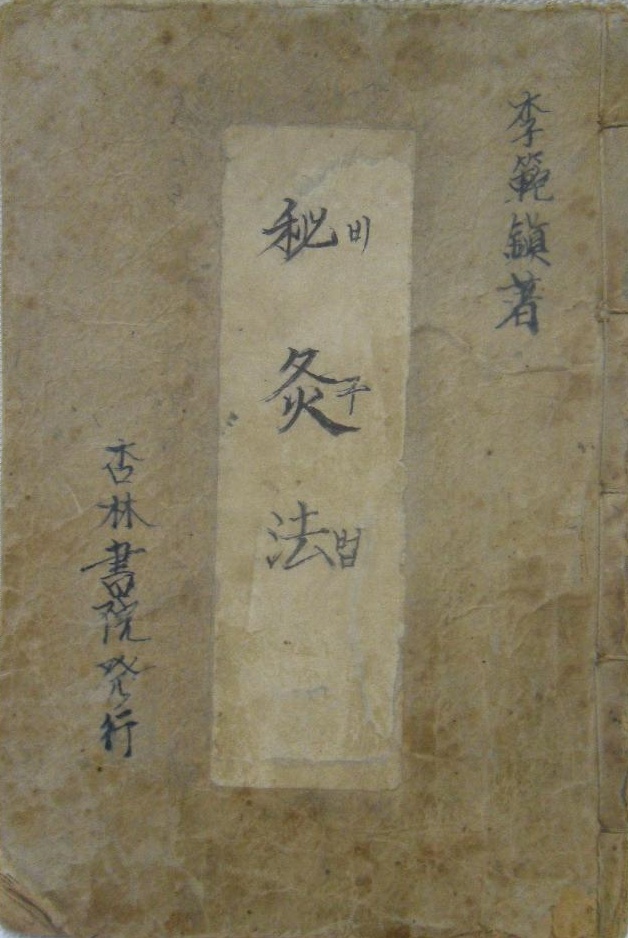 李範鎭著
秘灸法
비구법
杏林書院発行